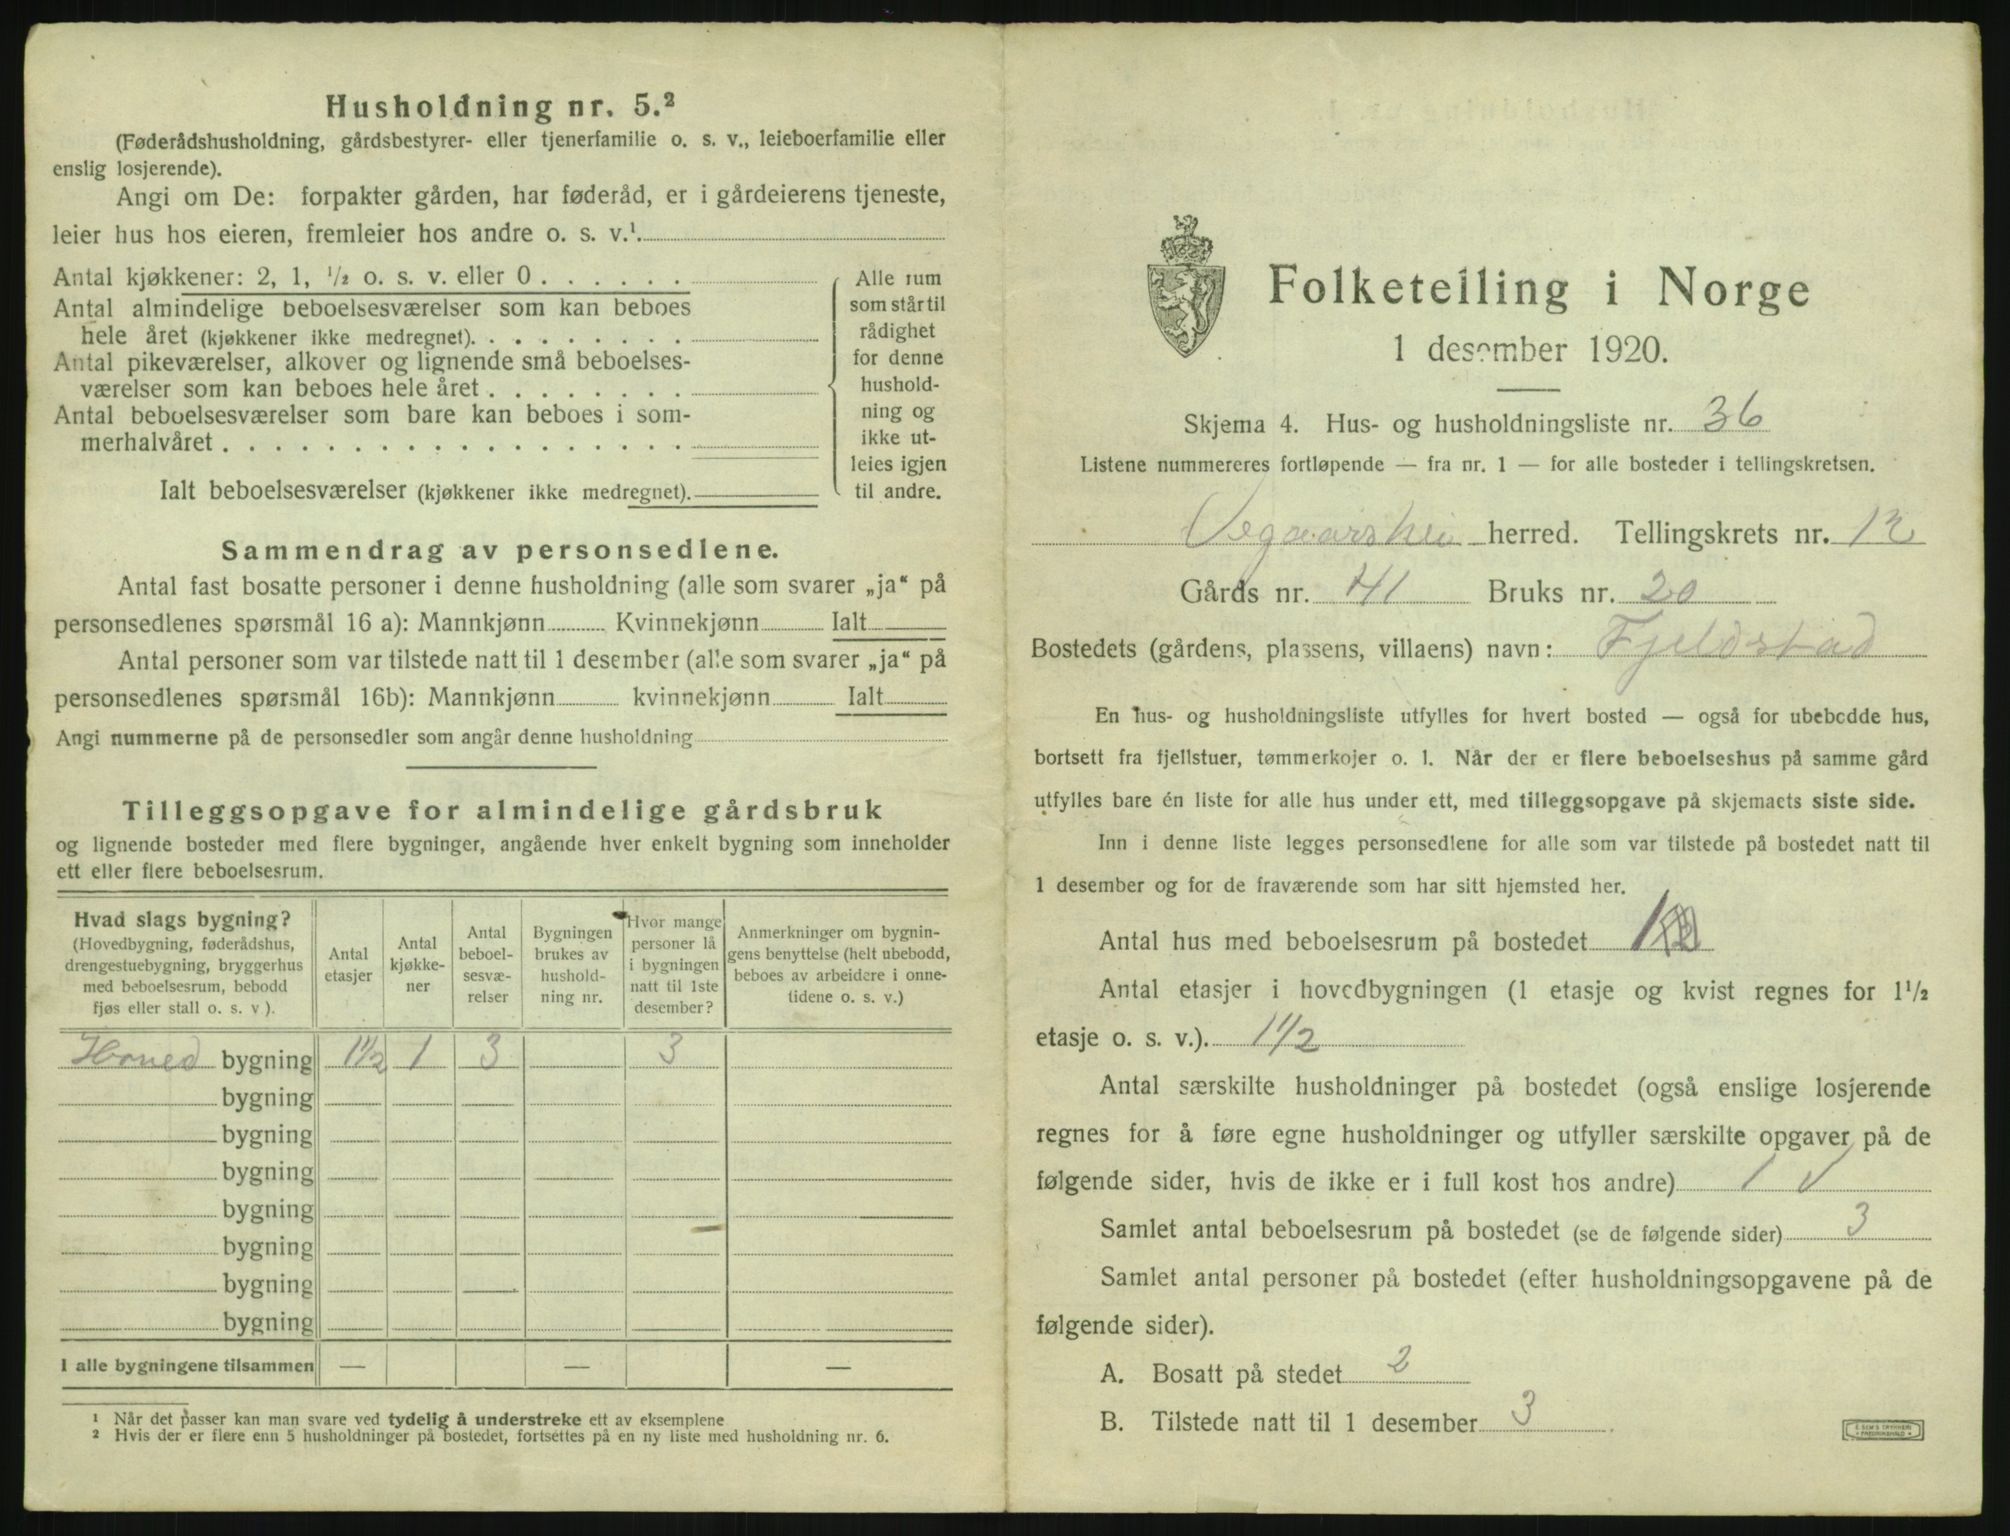 Husholdning nr. 5.²
(Føderådshusholdning, gårdsbestyrer- eller tjenerfamilie o. s. v., leieboerfamilie eller
enslig losjerende).
Angi om De: forpakter gården, har føderåd, er i gårdeierens tjeneste,
leier hus hos eieren, fremleier hos andre o. s. v.¹
Antal kjøkkener: 2, 1, ½ o. s. v. eller 0
Antal almindelige beboelsesværelser som kan beboes
hele året (kjøkkener ikke medregnet).
Antal pikeværelser, alkover og lignende små beboelses-
værelser som kan beboes hele året
Antal beboelsesværelser som bare kan beboes i som-
merhalvåret
Ialt beboelsesværelser (kjøkkener ikke medregnet).
Alle rum
som står til
rådighet
for denne
hushold-
ning og
ikke ut-
leies igjen
til andre.
Sammendrag av personsedlene.
Antal fast bosatte personer i denne husholdning (alle som svarer „ja“ på
personsedlenes spørsmål 16 a): Mannkjønn Kvinnekjønn Ialt
Antal personer som var tilstede natt til 1 desember (alle som svarer „ja“ på
personsedlenes spørsmål 16b): Mannkjønn kvinnekjønn Ialt
Angi nummerne på de personsedler som angår denne husholdning
Tilleggsopgave for almindelige gårdsbruk
og lignende bosteder med flere bygninger, angående hver enkelt bygning som inneholder
ett eller flere beboelsesrum.
Hvad slags bygning?
(Hovedbygning, føderådshus,
drengestuebygning, bryggerhus
med beboelsesrum, bebodd
fjøs eller stall o. s. v ).
Antal
etasjer
Antal
kjøkke-
ner
Antal
beboel-
sesvæ-
relser
Bygningen
brukes av
hushold-
ning nr.
Hvor mange
personer lå
i bygningen
natt til 1ste
desember?
Anmerkninger om bygnin-
gens benyttelse (helt ubebodd,
beboes av arbeidere i onne-
tidene o. s. v.)
Hoved bygning 1½ 1 3 3
bygning
bygning
bygning
bygning
bygning
bygning
bygning
I alle bygningene tilsammen — — —
¹ Når det passer kan man svare ved tydelig å understreke ett av eksemplene
² Hvis der er flere enn 5 husholdninger på bostedet, fortsettes på en ny liste med husholdning nr. 6.
Folketelling i Norge
1 desember 1920.
Skjema 4. Hus- og husholdningsliste nr. 36
Listene nummereres fortløpende — fra nr. 1 — for alle bosteder i tellingskretsen.
Vegaarshei herred. Tellingskrets nr. 12
Gårds nr. 41 Bruks nr. 20
Bostedets (gårdens, plassens, villaens) navn: Fjeldstad
En hus- og husholdningsliste utfylles for hvert bosted — også for ubebodde hus,
bortsett fra fjellstuer, tømmerkojer o. l. Når der er flere beboelseshus på samme gård
utfylles bare én liste for alle hus under ett, med tilleggsopgave på skjemaets siste side.
Inn i denne liste legges personsedlene for alle som var tilstede på bostedet natt til
1 desember og for de fraværende som har sitt hjemsted her.
Antal hus med beboelsesrum på bostedet 1
Antal etasjer i hovedbygningen (1 etasje og kvist regnes for 1½
etasje o. s. v.). 1½
Antal særskilte husholdninger på bostedet (også enslige losjerende
regnes for å føre egne husholdninger og utfyller særskilte opgaver på de
følgende sider, hvis de ikke er i full kost hos andre) 1 √
Samlet antal beboelsesrum på bostedet (se de følgende sider) 3
Samlet antal personer på bostedet (efter husholdningsopgavene på de
følgende sider).
A. Bosatt på stedet 2
B. Tilstede natt til 1 desember 3
E SEM'S TRYKKERI
FREDRIKSHALD